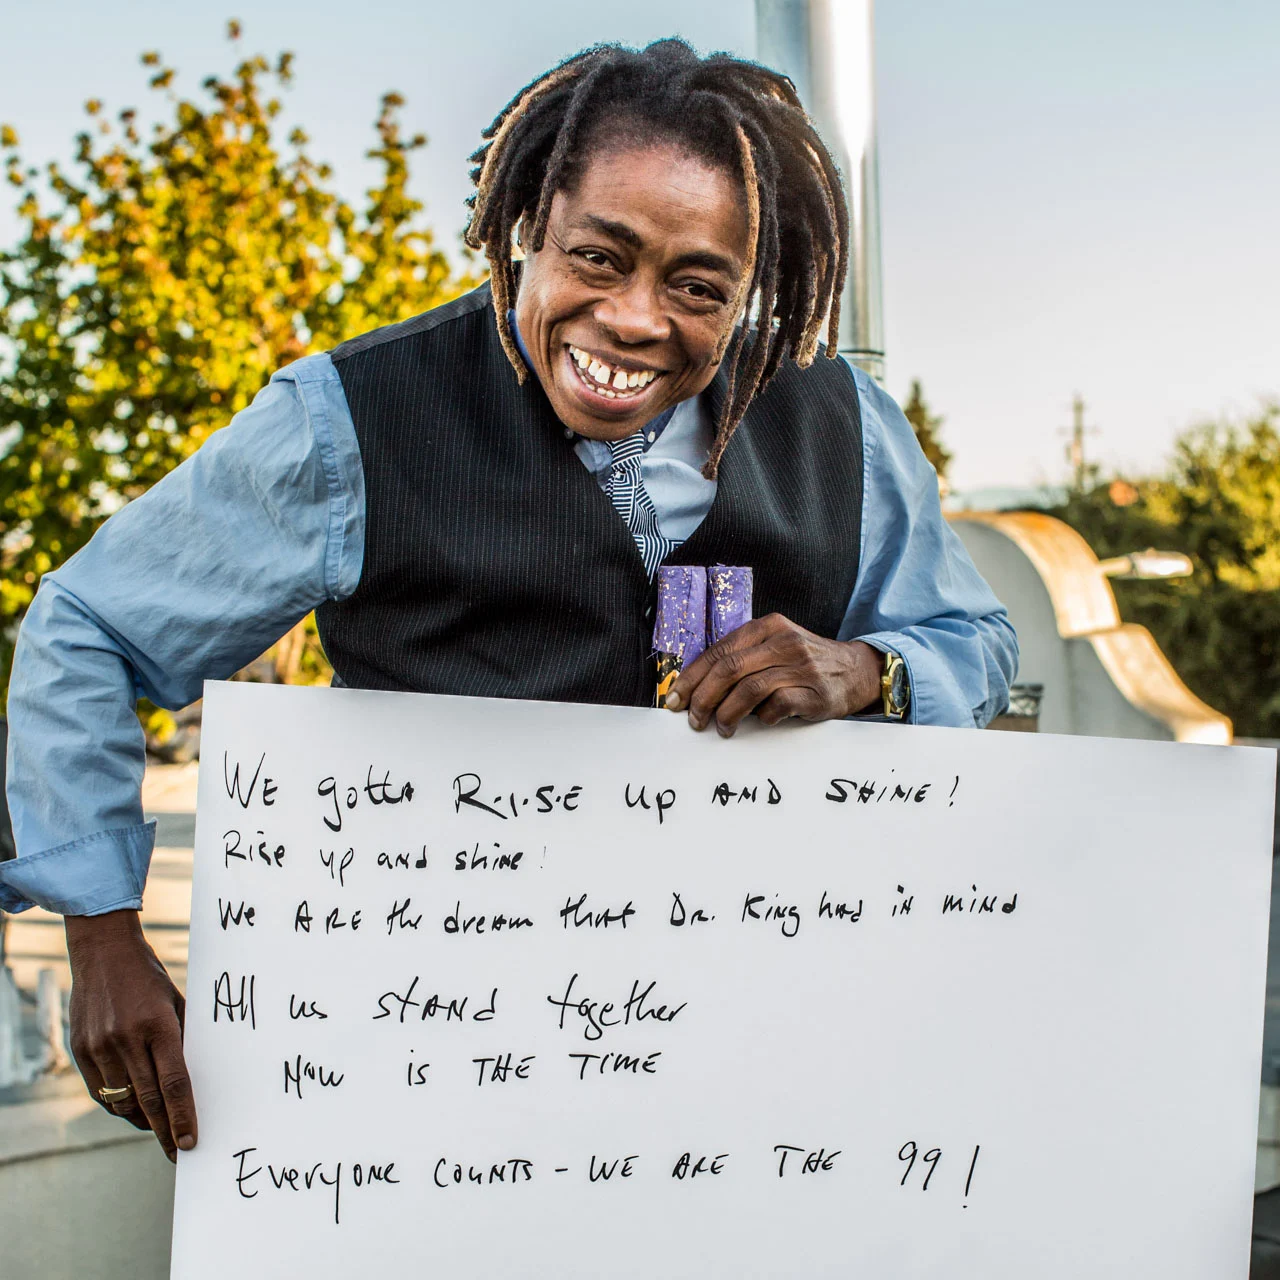 WE gotta R.I.S.E up AND SHINE!
Rise up and shine!
We ARE the dream that Dr. King had in mind
All us STAND together
Now is THE TIME
Everyone COUNTS - WE ARE THE 99!